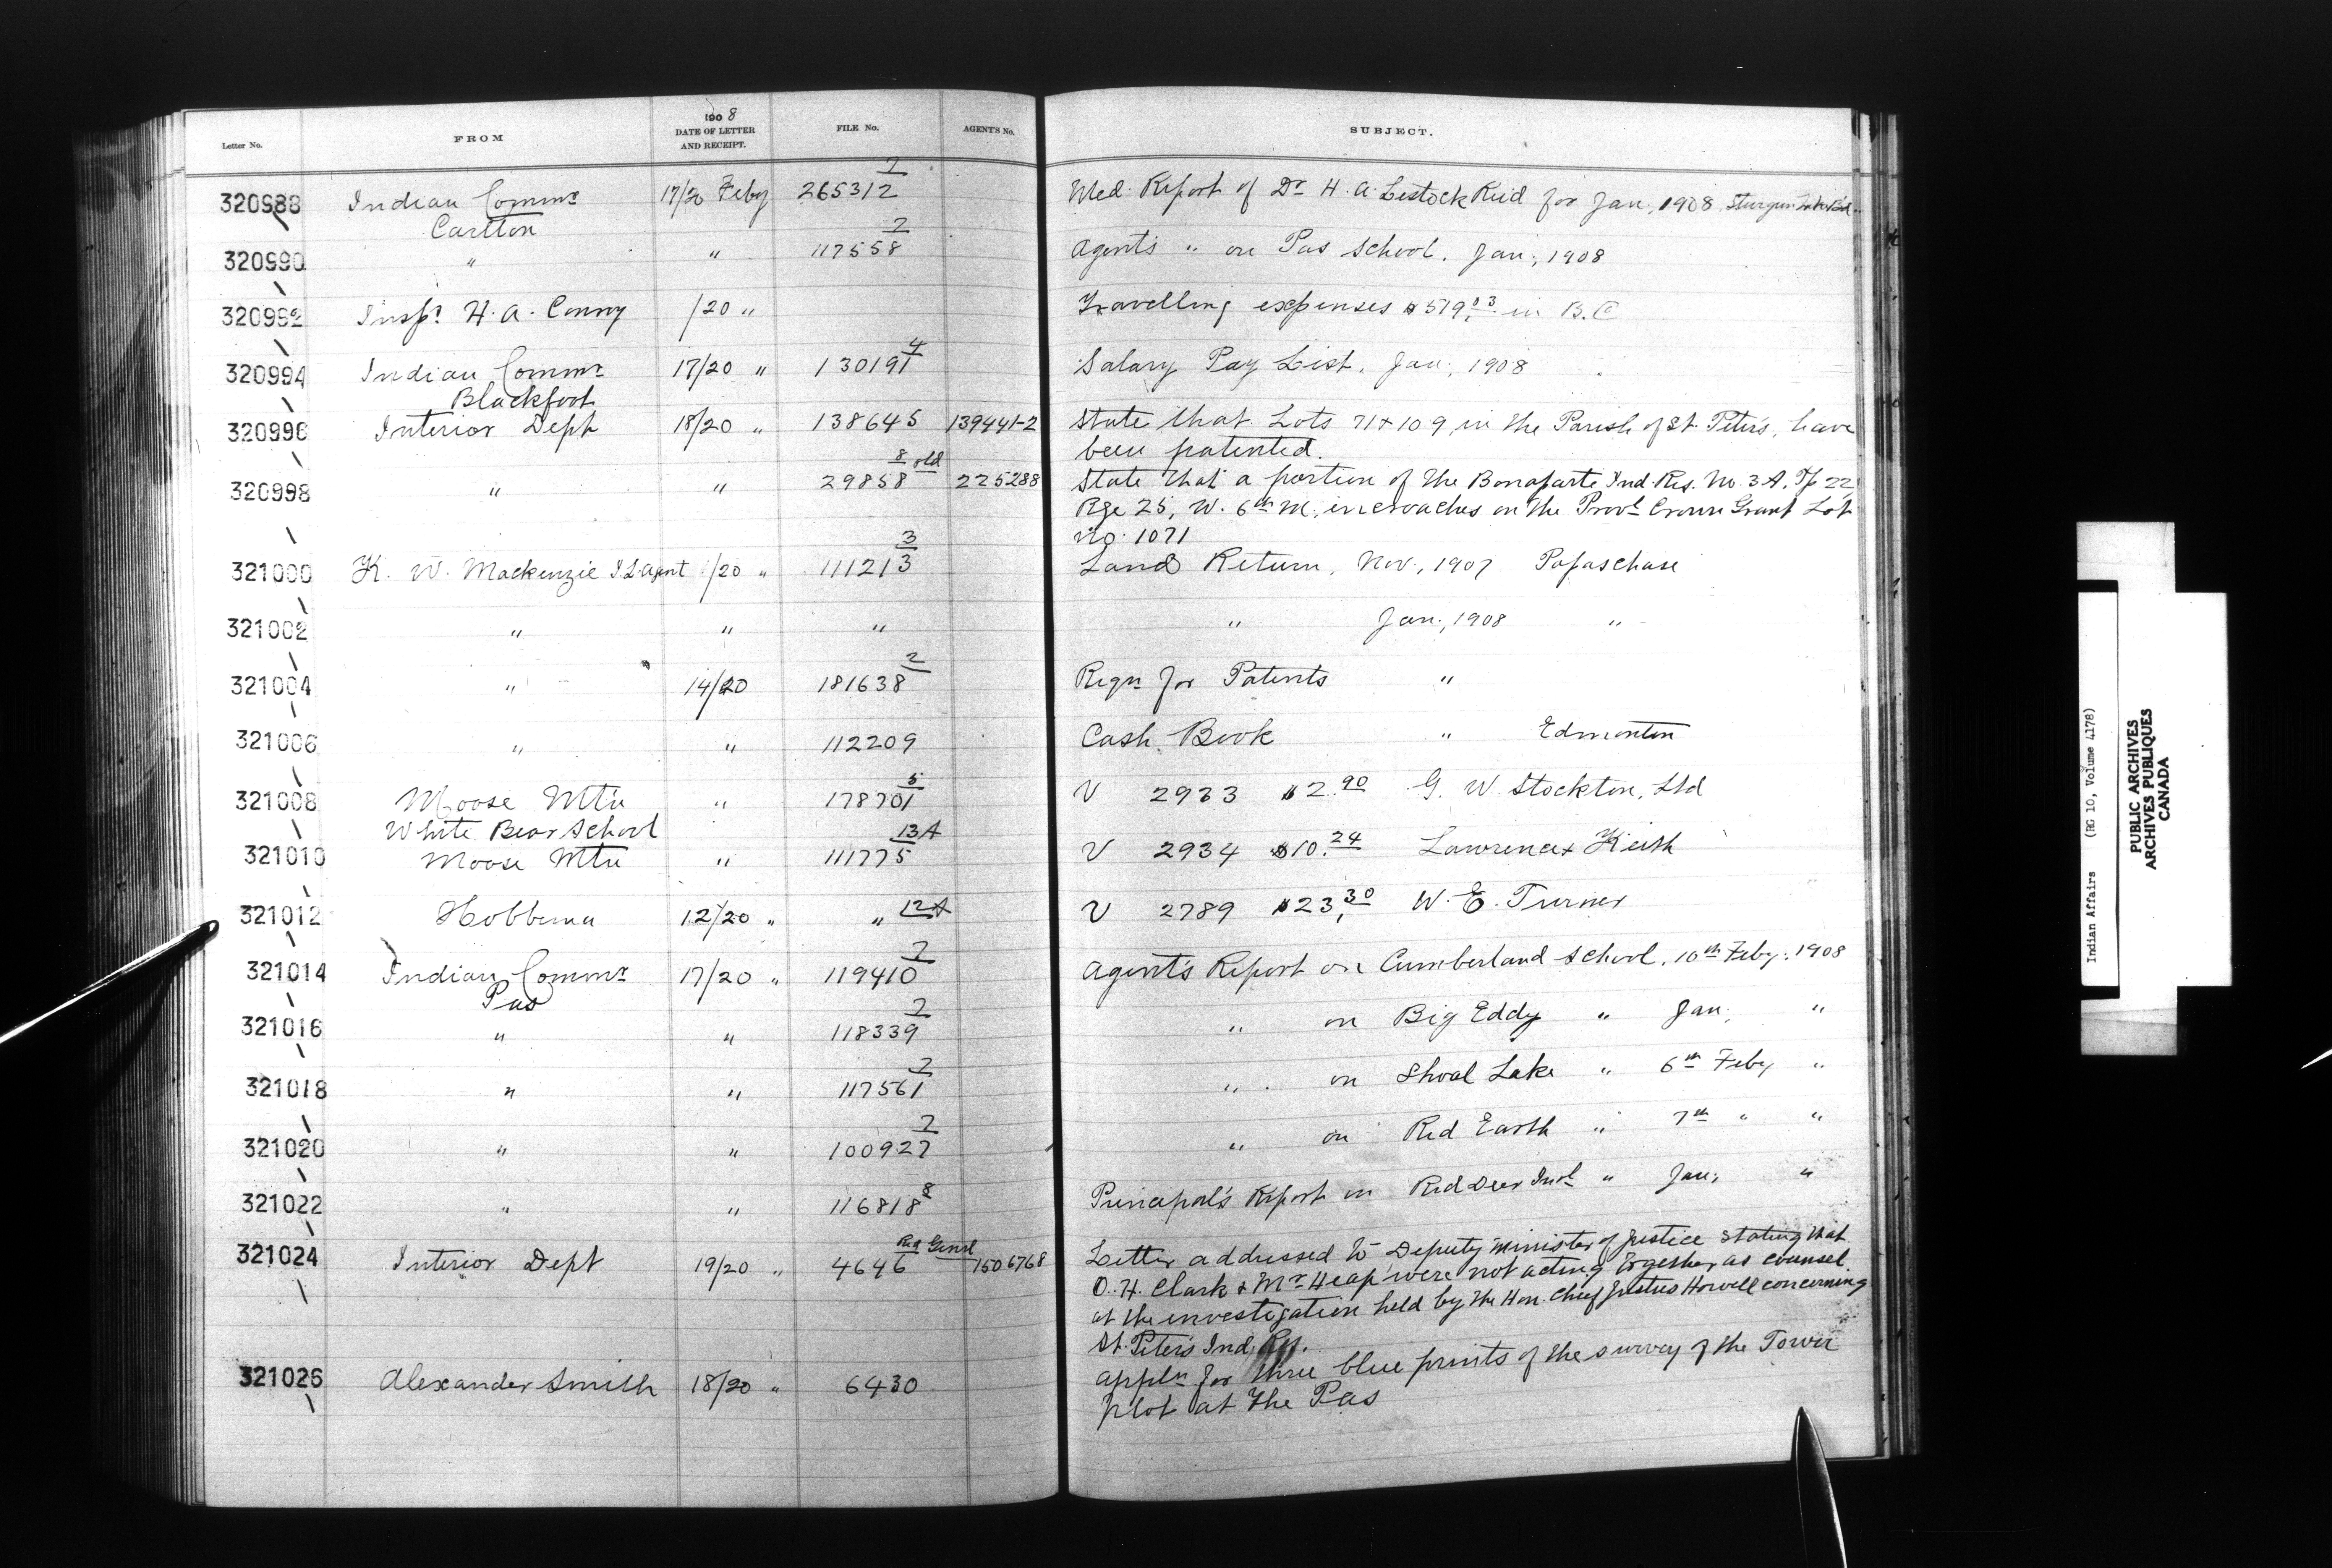 1908
Letter No. FROM DATE OF LETTER AND RECEIPT. FILE No. AGENT'S No. SUBJECT.
320988 Indian Commr 17/20 Feby 265312 2 Med. Report of Dr H. A. Lestock Reid for Jan., 1908
Carlton
320990 " " 117558 2 Agents " on Pas School. Jan., 1908
320992 Inspr H. A. Conroy /20 " Travelling expenses $519.03 in B.C
320994 Indian Commr 17/20 " 130191 4 Salary Pay List. Jan., 1908
Blackfoot
320996 Interior Dept 18/20 " 138645 139441-2 State that Lots 71 + 109, in the Parish of St. Peter's, have
been patented.
320998 " " 29858 8 old 225288 State that a portion of the Bonaparte Ind. Res. No. 3 A. Tp 22
Rge 25, W. 6th M., encroaches on the Provl Crown Grant Lot
No. 1071
321000 K. W. Mackenzie I. L. Agent /20 " 111213 3 Land Return, Nov., 1907 Papaschase
321002 " " " " Jan., 1908 "
321004 " 14/20 181638 2 Reqn for Patents "
321006 " " 112209 Cash Book " Edmonton
321008 Moose Mtn " 178701 5 V 2933 $2.90 G. W. Stockton, Ltd
White Bear School
321010 Moose Mtn " 111775 13A V 2934 $10.24 Lawrence + Keith
321012 Hobbema 12/20 " " 12A V 2789 $23.30 W. E. Turner
321014 Indian Commr 17/20 " 119410 2 Agent's Report on Cumberland School. 10th Feby. 1908
Pas
321016 " " 118339 2 " on Big Eddy " Jan. "
321018 " " 117561 2 " on Shoal Lake " 6th Feby "
321020 " " 100927 2 " on Red Earth " 7th " "
321022 " " 116818 8 Principal's Report on Red Deer Indl " Jan. "
321024 Interior Dept 19/20 " 4646 Reg Genrl 1506768 Letter addressed to Deputy Minister of Justice stating that
O. H. Clark & Mr Heap were not acting together as counsel
at the investigation held by the Hon. Chief Justice Howell concerning
St. Peter's Ind. Res.
321026 Alexander Smith 18/20 " 6430 Appln for three blue prints of the survey of the Tower
plot at The Pas
Indian Affairs (RG 10, Volume 4178)
PUBLIC ARCHIVES
ARCHIVES PUBLIQUES
CANADA